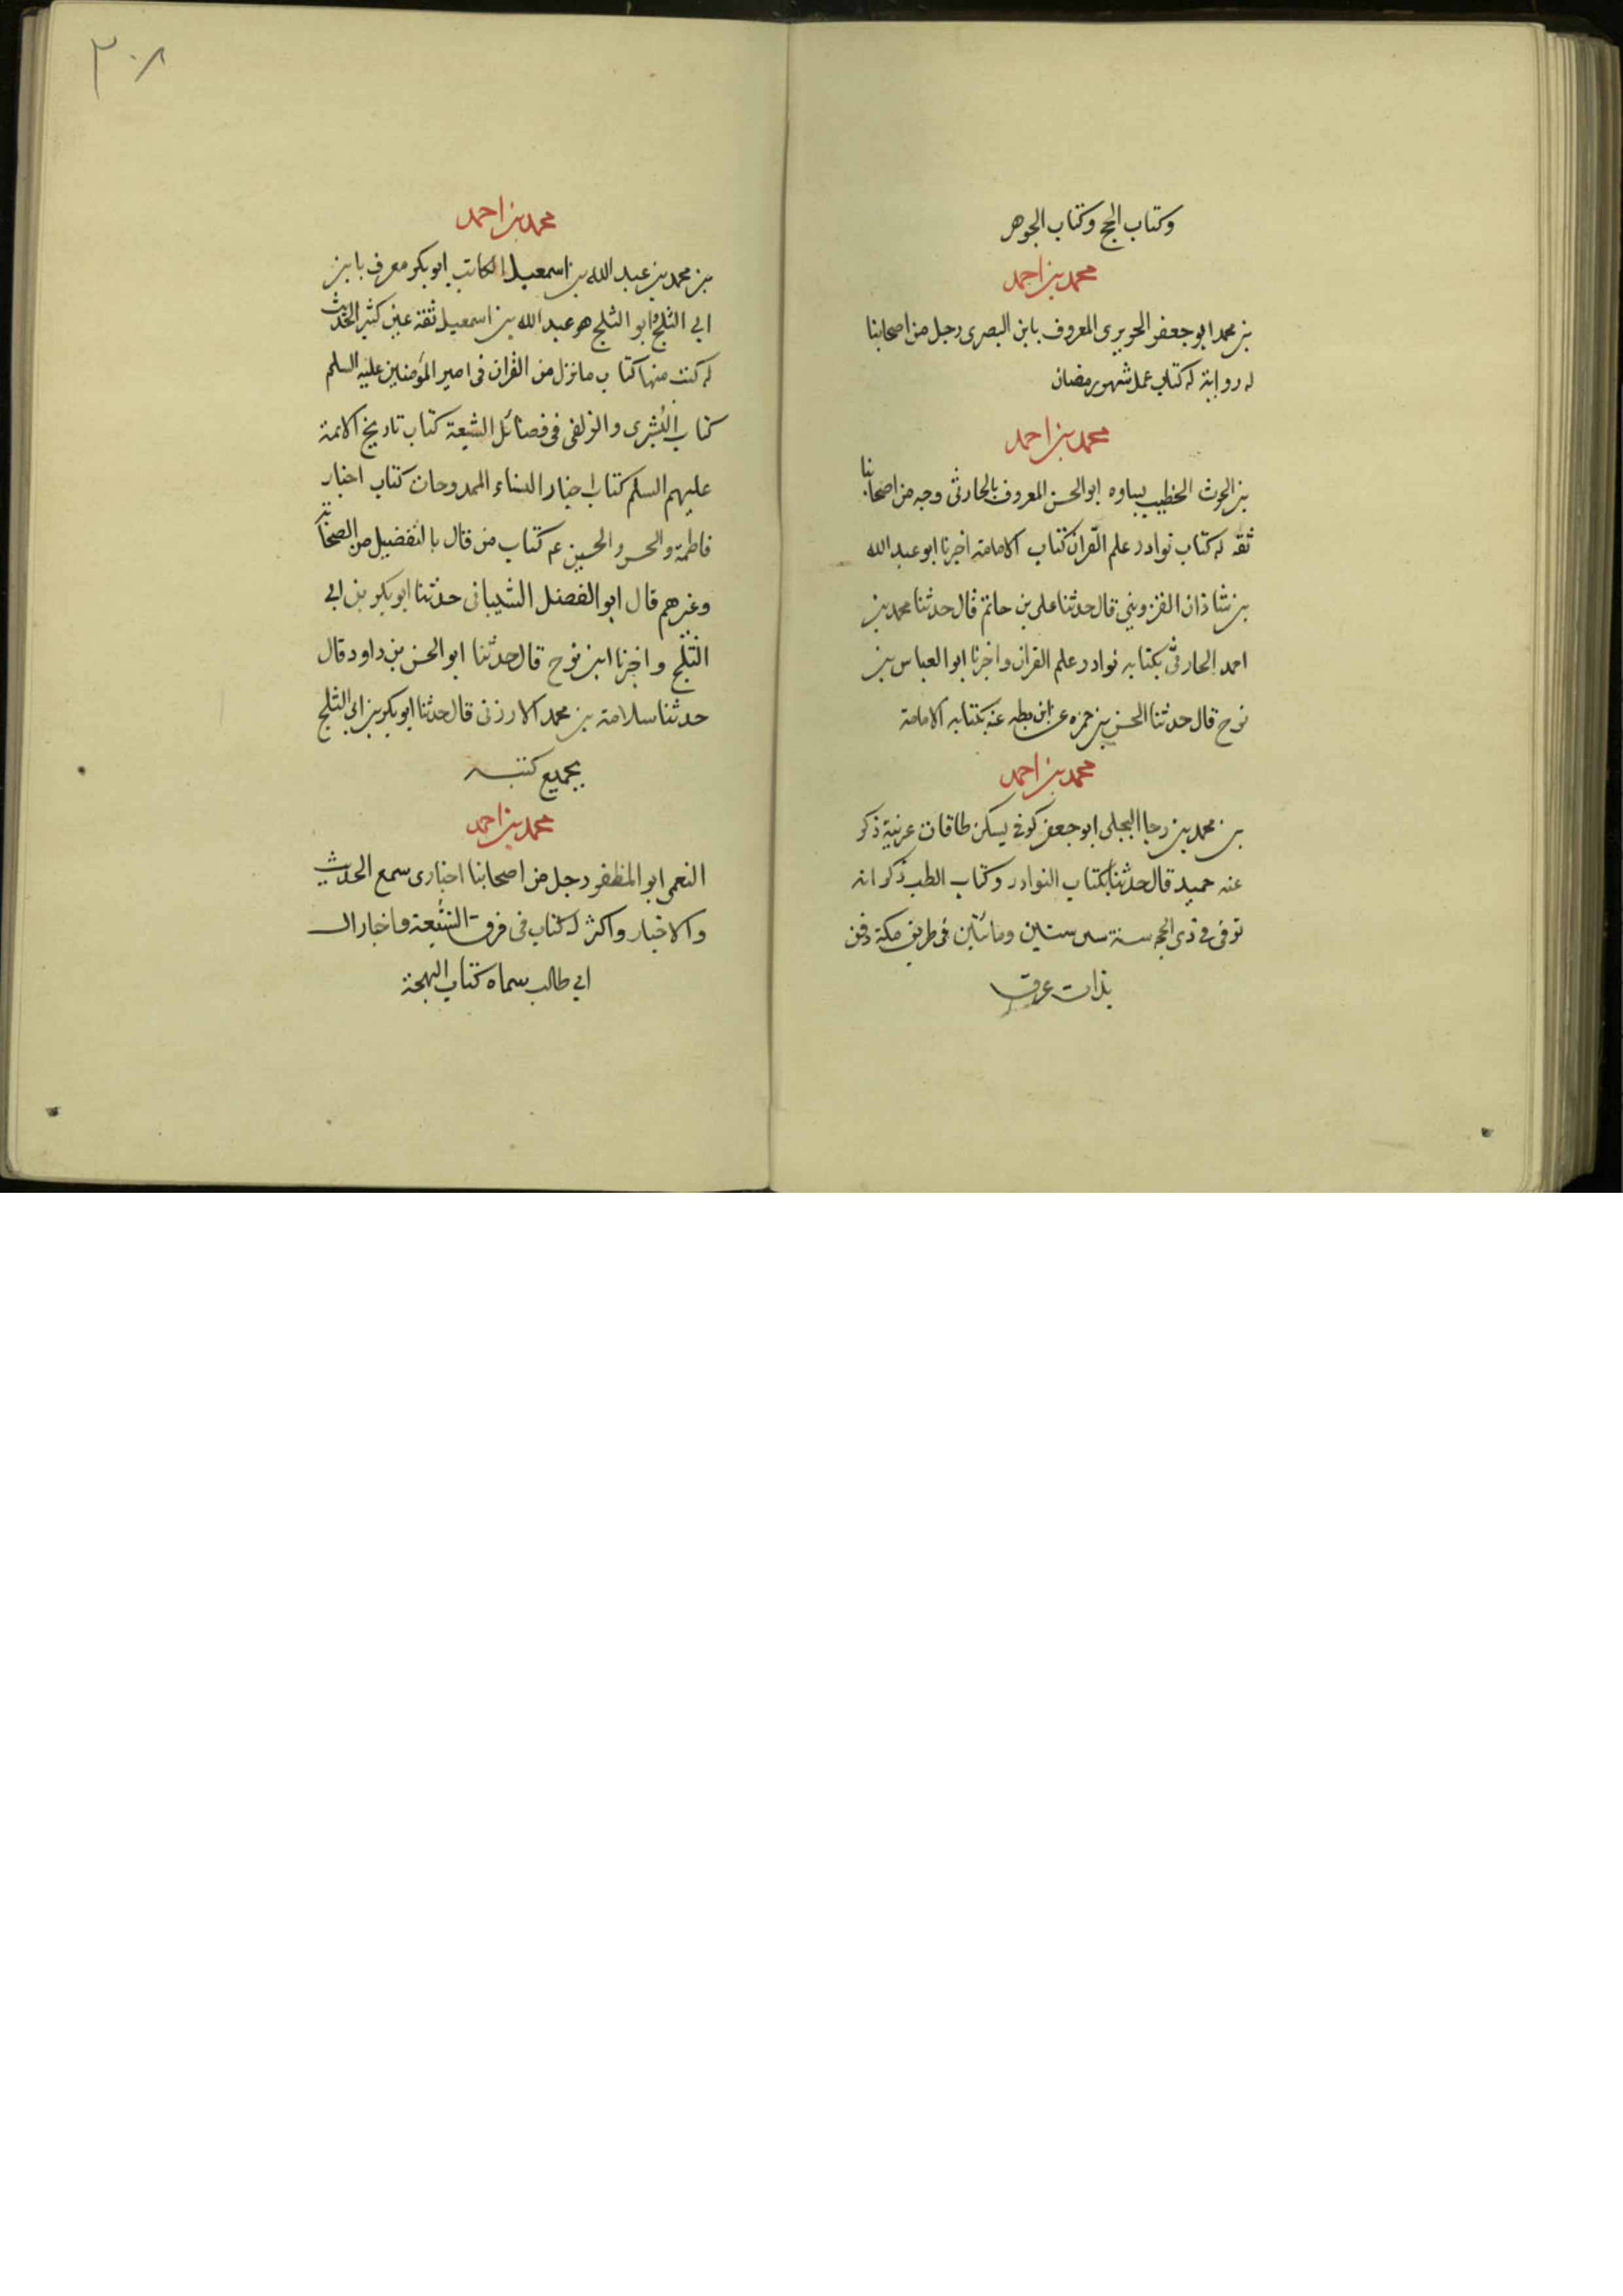 وكتاب الحج وكتاب الجوهر
محمد بن احمد
بن محمد ابو جعفر الحريري المعروف بابن البصرى رجل من اصحابنا
له رواية له كتاب عمل شهر رمضان
محمد بن احمد
بن الحرث الخطيب بساوه ابو الحسن المعروف بالحارثى وجه من اصحابنا
ثقة له كتاب نوادر علم القران كتاب الامامة اخبرنا ابو عبد الله
بن شاذان القزويني قال حدثنا على بن حاتم قال حدثنا محمد بن
احمد الحارثى بكتابه نوادر علم القران واخبرنا ابو العباس بن
نوح قال حدثنا الحسن بن حمزه عن ابن بطه عنه بكتابه الامامة
محمد بن احمد
بن محمد بن رجا البجلى ابو جعفر كوفي يسكن طاقات عرنية ذكر
عنه حميد قال حدثنا بكتاب النوادر وكتاب الطب ذكر انه
توفى في ذى الحجه سنة ستين ومائتين فى طريق مكة دفن
بذات عرق
٣٠٨
محمد بن احمد
بن محمد بن عبد الله بن اسمعيل الكاتب ابو بكر معرف بابن
ابي الثلج وابو الثلج هو عبد الله بن اسمعيل ثقة عين كثير الحديث
له كتب منها كتاب ما نزل من القران فى امير المؤمنين عليه السلم
كتاب البشرى والزلفى فى فضائل الشيعة كتاب تاريخ الائمة
عليهم السلم كتاب اخبار النساء الممدوحات كتاب اخبار
فاطمة والحسن والحسين عم كتاب من قال بالتفضيل من الصحابة
وغيرهم قال ابو الفضل الشيبانى حدثنا ابو بكر بن ابي
الثلج واخبرنا ابن نوح قال حدثنا ابو الحسن بن داود قال
حدثنا سلامة بن محمد الارزنى قال حدثنا ابو بكر بن ابي الثلج
بجميع كتبه
محمد بن احمد
النعمى ابو المظفر رجل من اصحابنا اخبارى سمع الحديث
والاخبار واكثر له كتاب فى فرق الشيعة واخبار ال
ابي طالب سماه كتاب البهجة